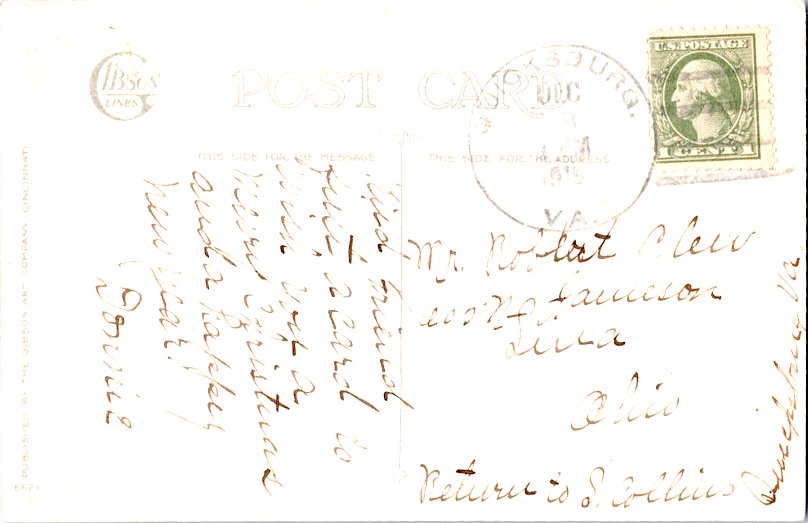 GIBSON
LINES
POST CARD
THIS SIDE FOR THE MESSAGE
THIS SIDE FOR THE ADDRESS
KSBURG.
DEC
VA.
U.S. POSTAGE
1 CENT 1
friend
Just a card to
wish you a
Merry Christmas
and a happy
New Year.
Mr. Robert
Jameson
Lima
Ohio
Return to S. Collins
Va
PUBLISHED BY THE GIBSON ART COMPANY, CINCINNATI